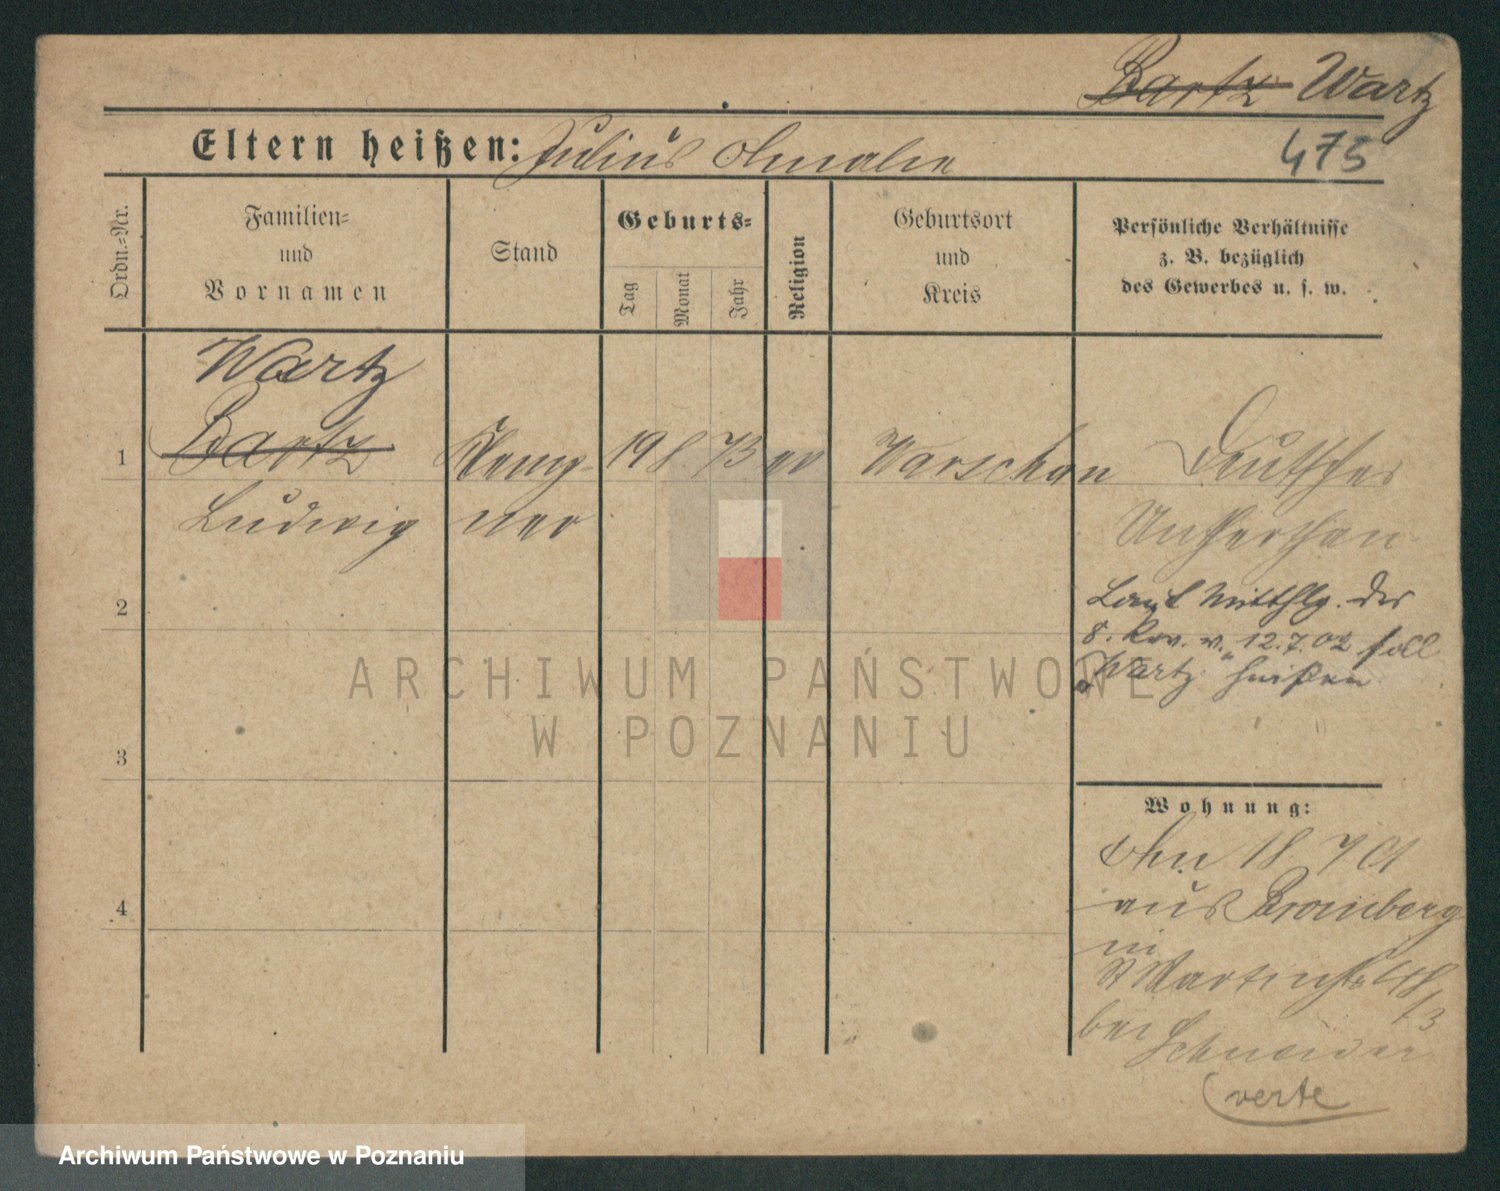 Bartz Wartz
Eltern heißen: Julius Amalie
475
Ordn.-Nr.
Familien-
und
Vornamen
Stand
Geburts-
Tag
Monat
Jahr
Religion
Geburtsort
und
Kreis
Persönliche Verhältnisse
z. B. bezüglich
des Gewerbes u. s. w.
Wartz
1 Bartz Klemp- 19 8 73 ev Warschau Deutscher
Ludwig ner
Unterthan
2
Laut Mitthlg. des
8. Rev. v. 12.7.02 soll
"Wartz" heißen
ARCHIWUM PAŃSTWOWE
W POZNANIU
3
Wohnung:
18 7 01
4
aus Bromberg
in
St Martinstr 48/13
bei
Schneider
(verte
Archiwum Państwowe w Poznaniu